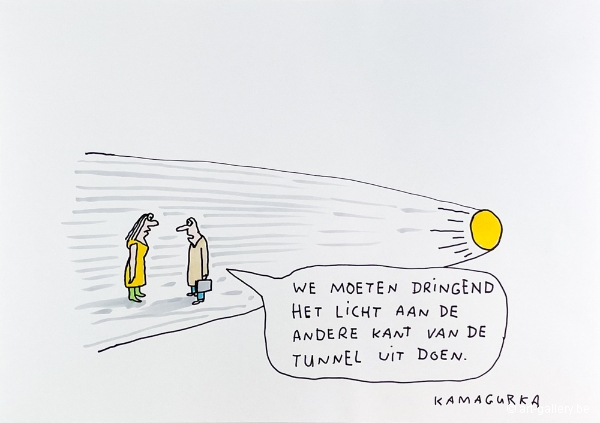 WE MOETEN DRINGEND
HET LICHT AAN DE
ANDERE KANT VAN DE
TUNNEL UIT DOEN.
KAMAGURKA